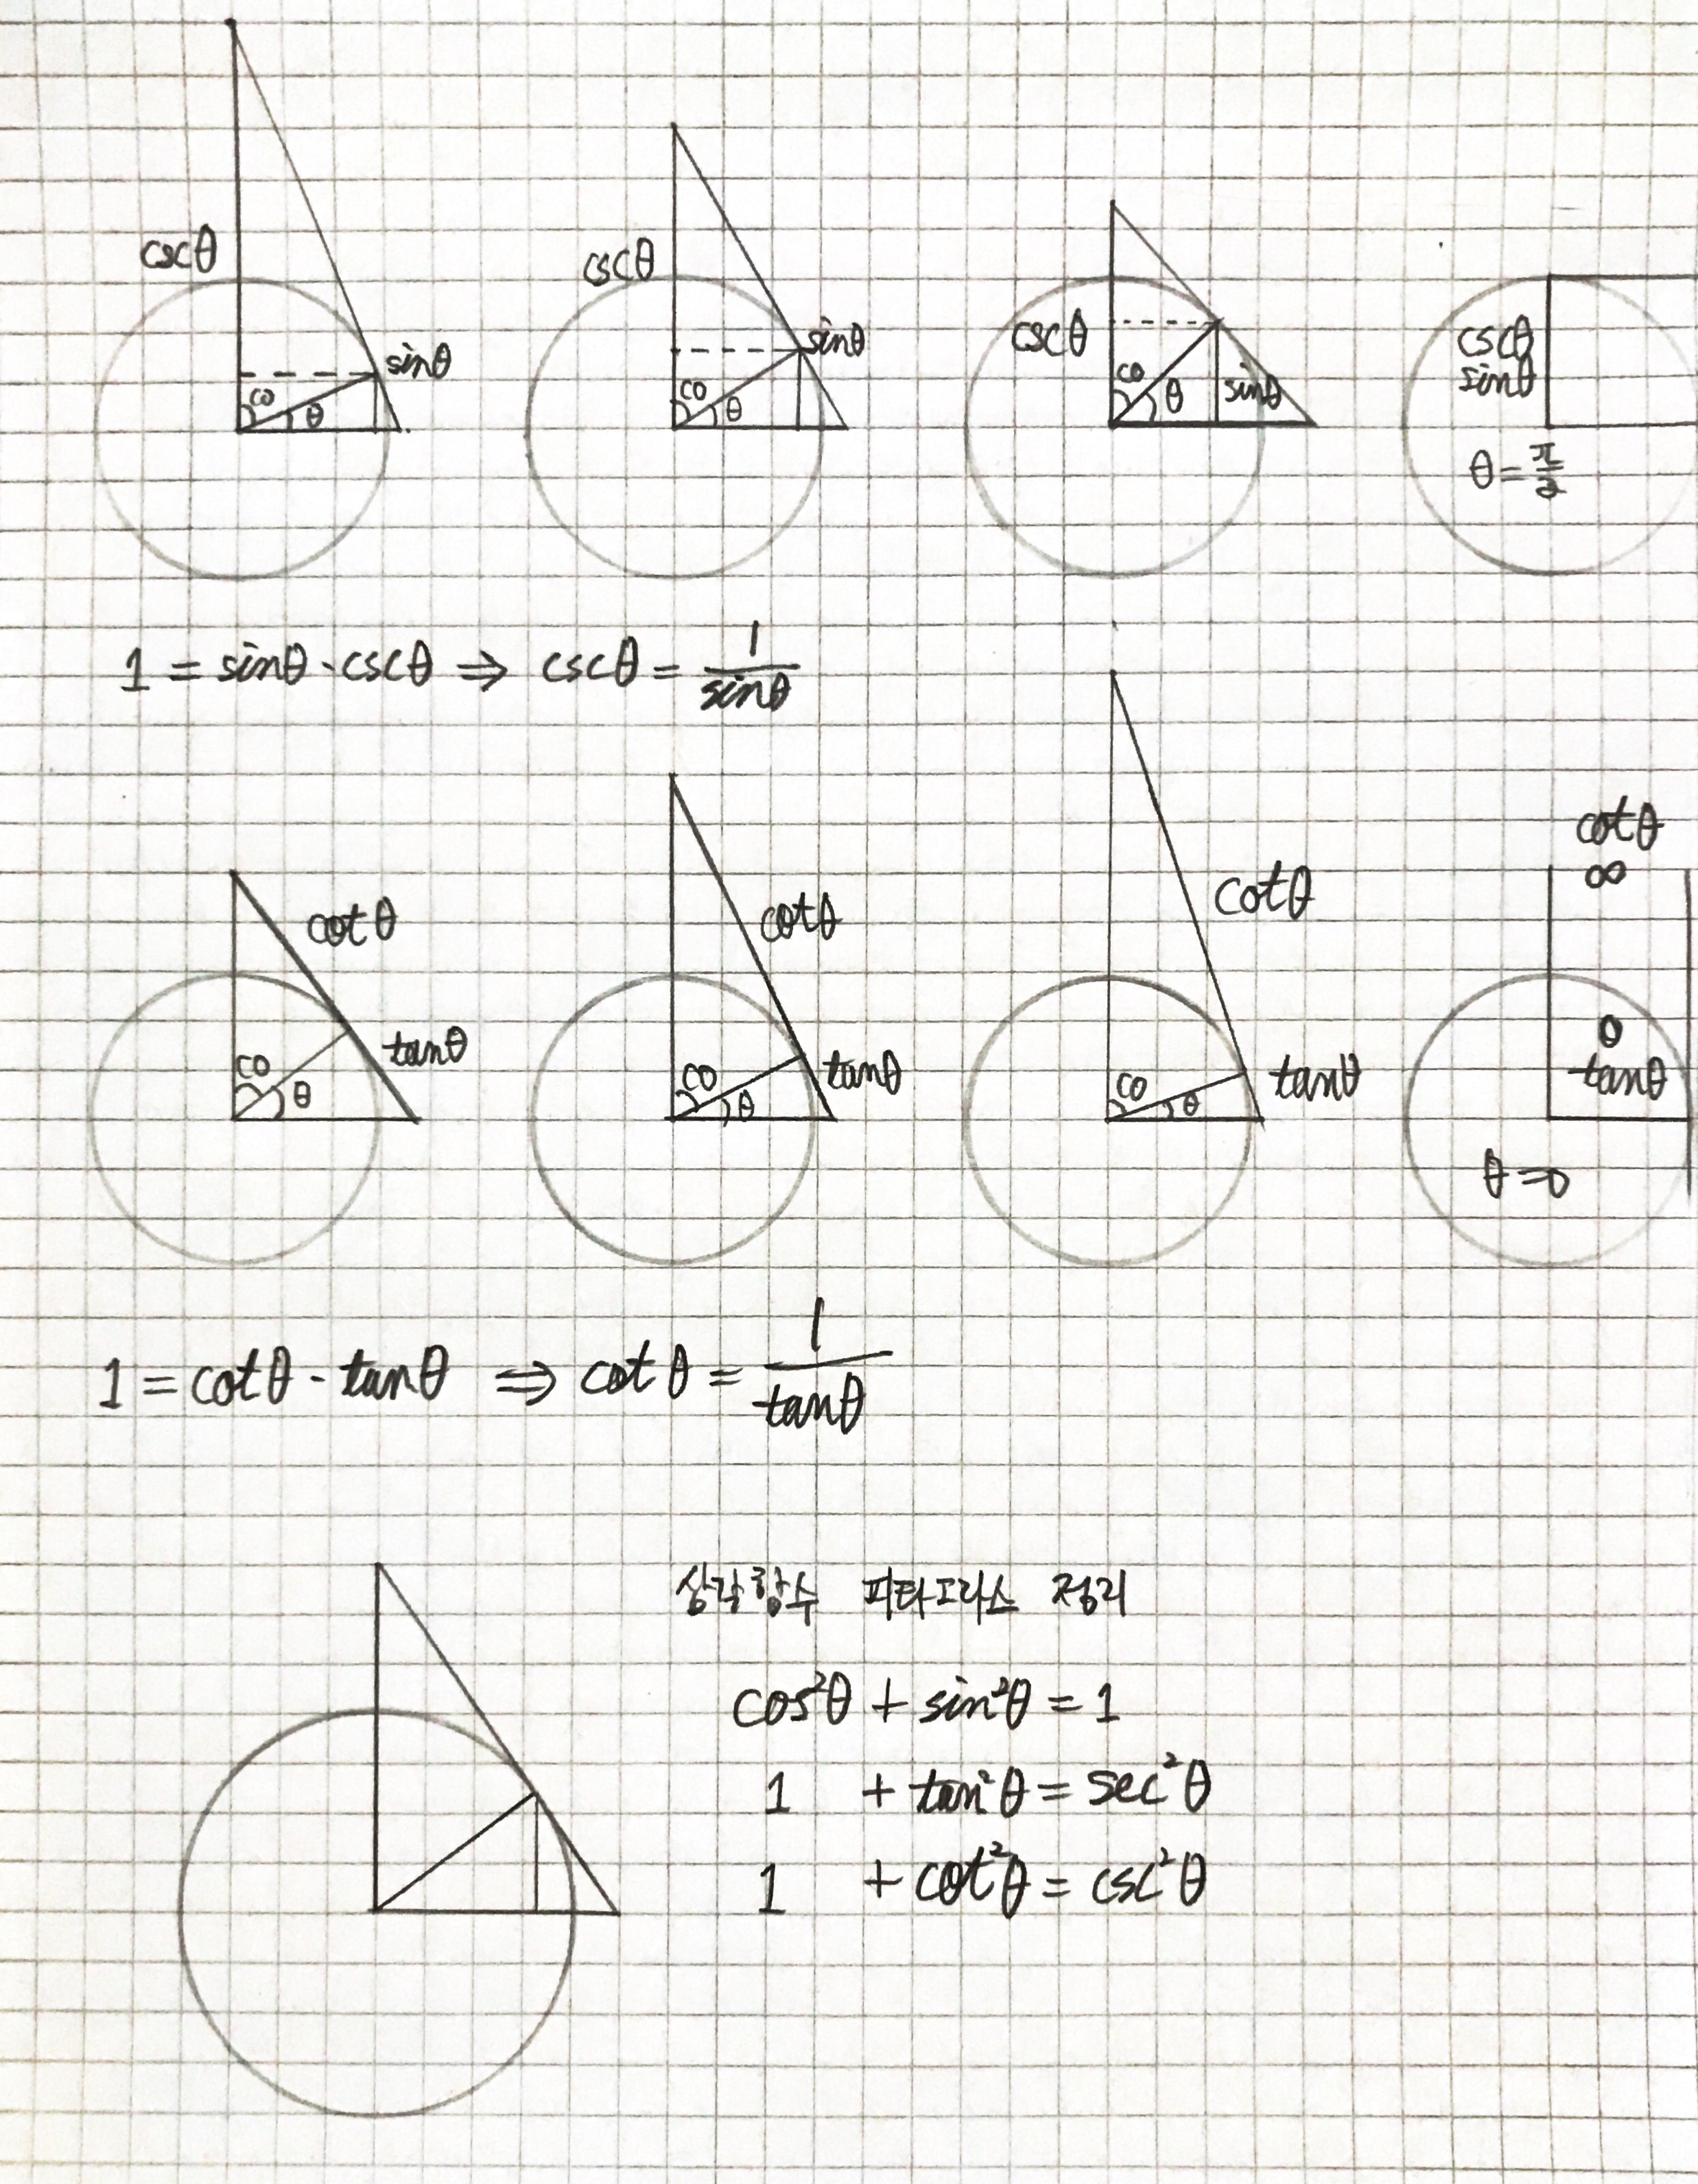 cscθ
sinθ
co θ
cscθ
sinθ
co θ
cscθ
co θ sinθ
cscθ
sinθ
θ = π/2
1 = sinθ · cscθ ⇒ cscθ = 1/sinθ
cotθ
tanθ
co θ
cotθ
tanθ
co θ
cotθ
tanθ
co θ
cotθ
∞
0
tanθ
θ = 0
1 = cotθ · tanθ ⇒ cotθ = 1/tanθ
삼각함수 피타고라스 정리
cos²θ + sin²θ = 1
1 + tan²θ = sec²θ
1 + cot²θ = csc²θ